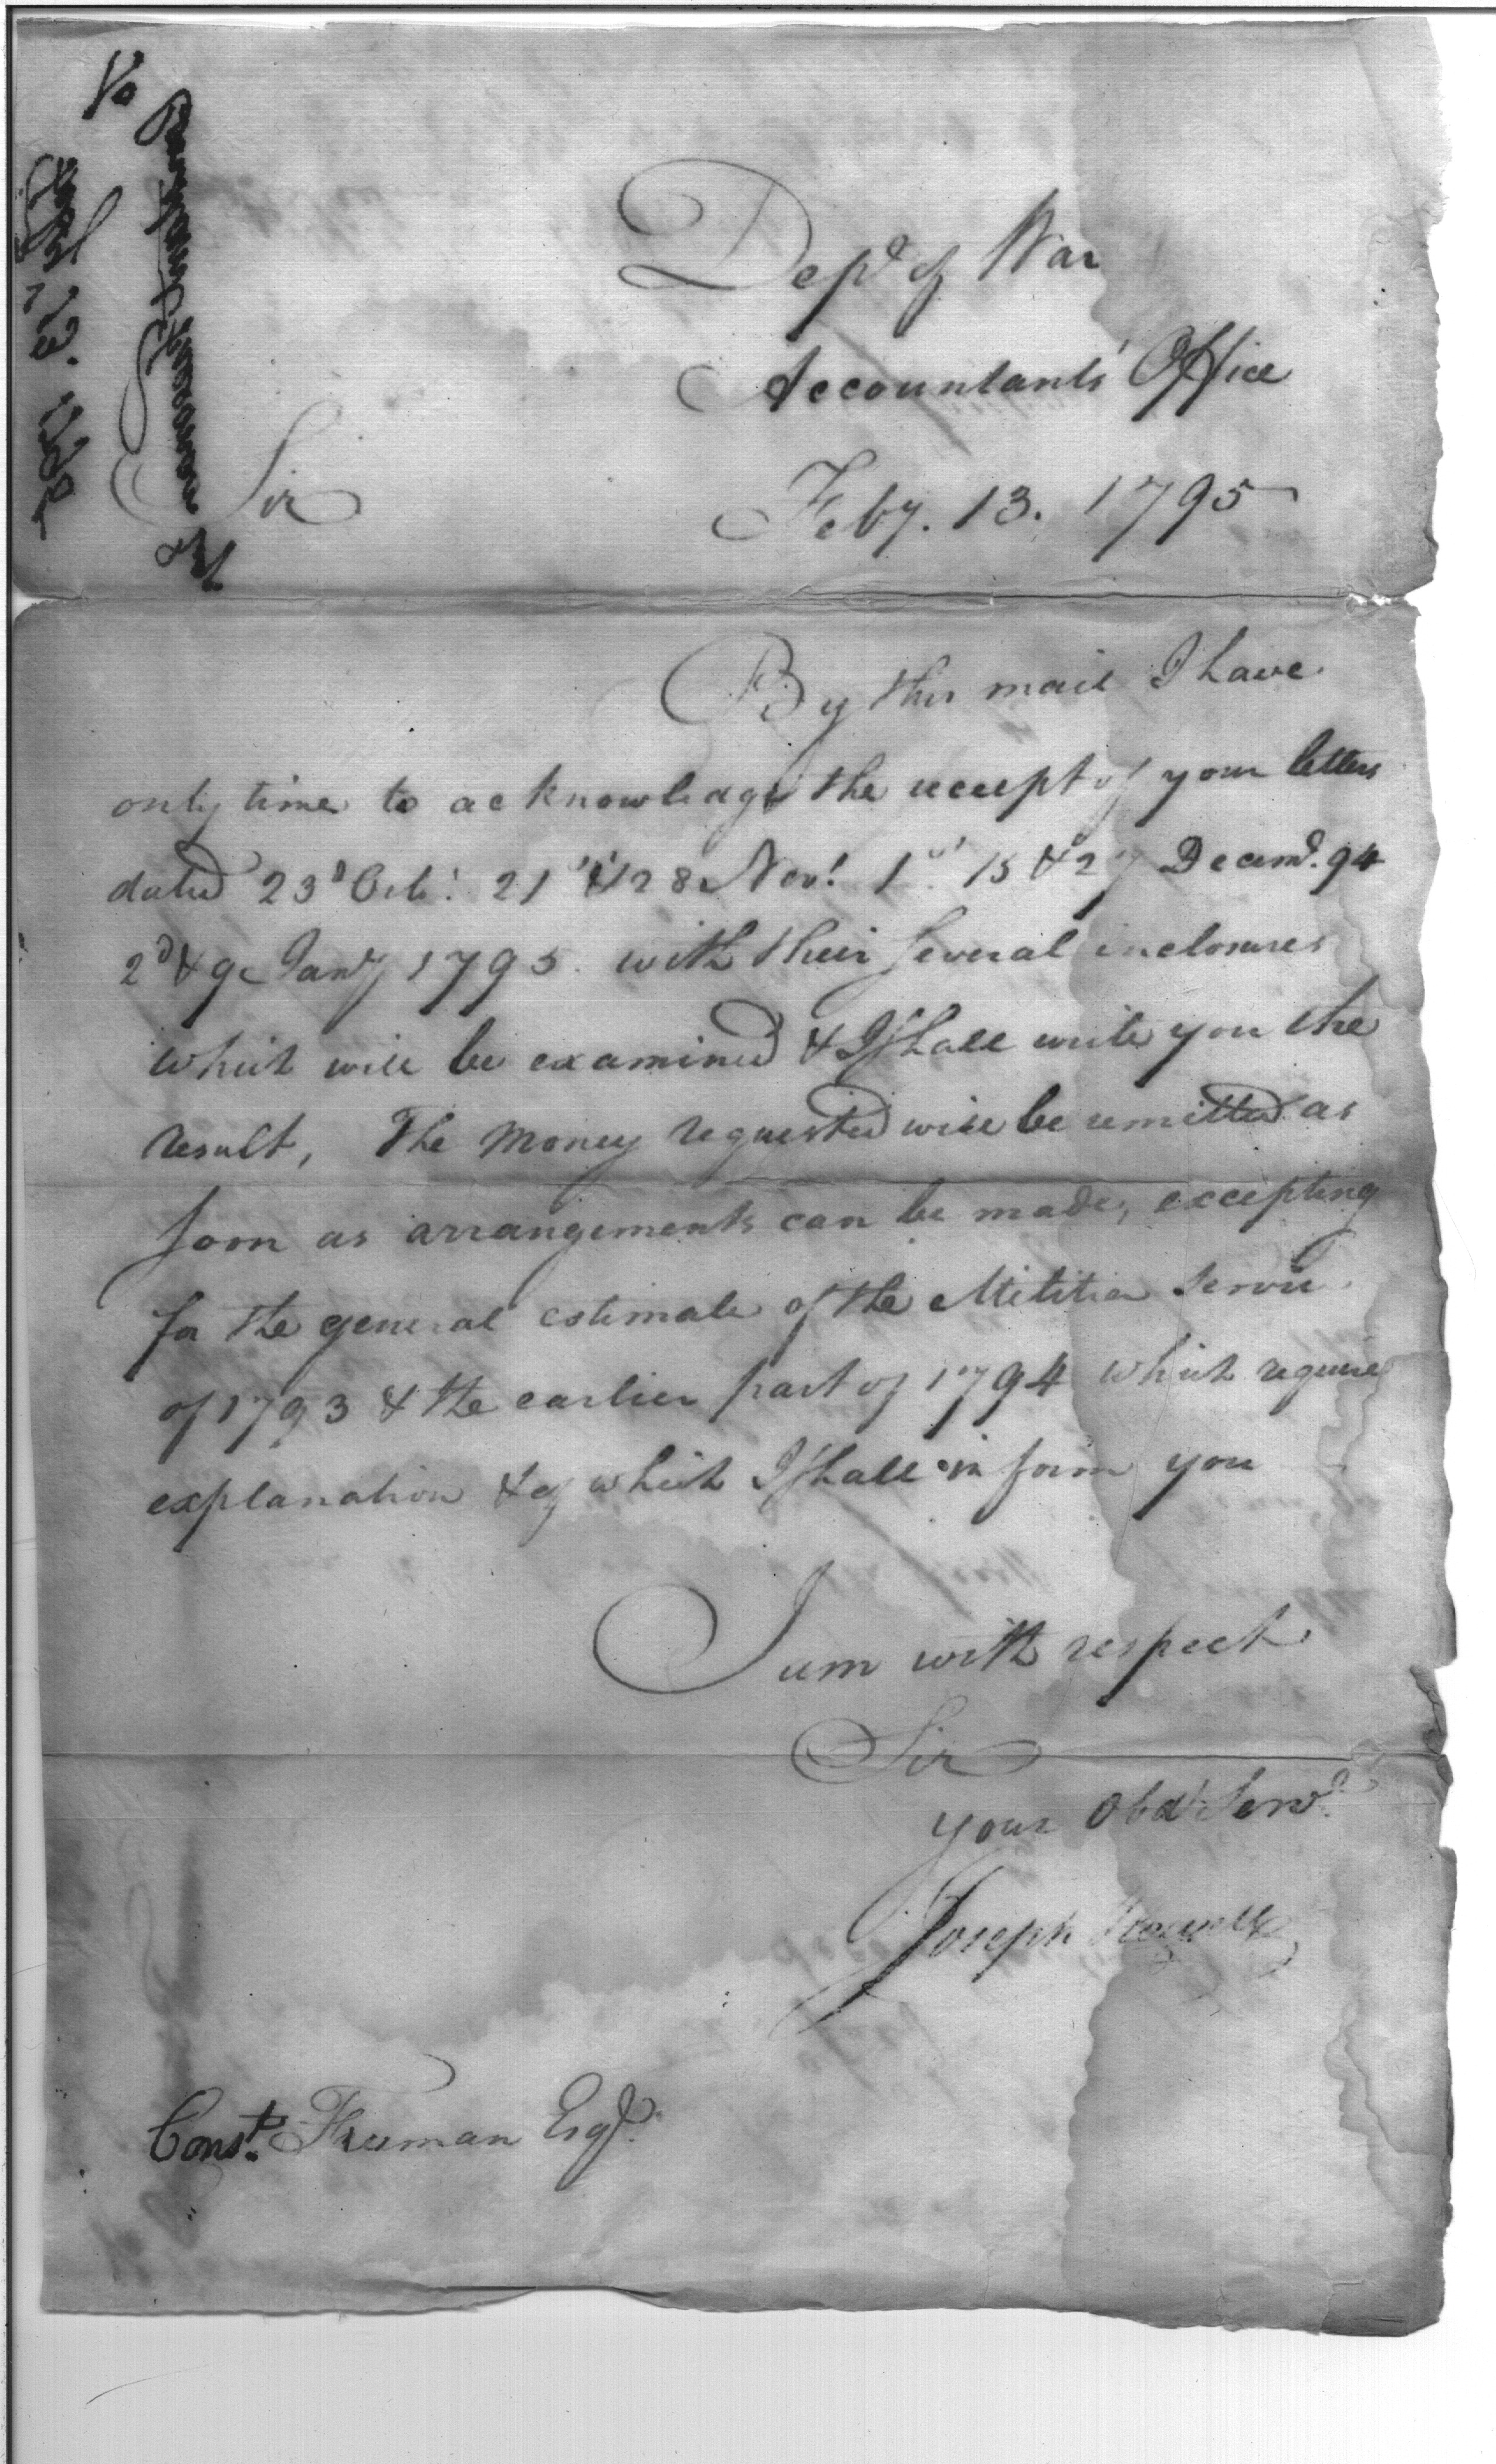 Dept. of War
Accountants' Office
Feby. 13. 1795
Sir
By this mail I have
only time to acknowledge the receipt of your letters
dated 23d Octr. 21 & 28 Novr. 1st. 15 & 27 Decemr. 94
2d & 9 Jany 1795. with their several inclosures
which will be examined & I shall write you the
result, The money requested will be remitted as
soon as arrangements can be made, excepting
for the general estimate of the Militia Service
of 1793 & the earlier part of 1794 which require
explanation & of which I shall inform you
I am with respect
Sir
your Obdt Servt.
Joseph Howell
Const. Freeman Esqr.